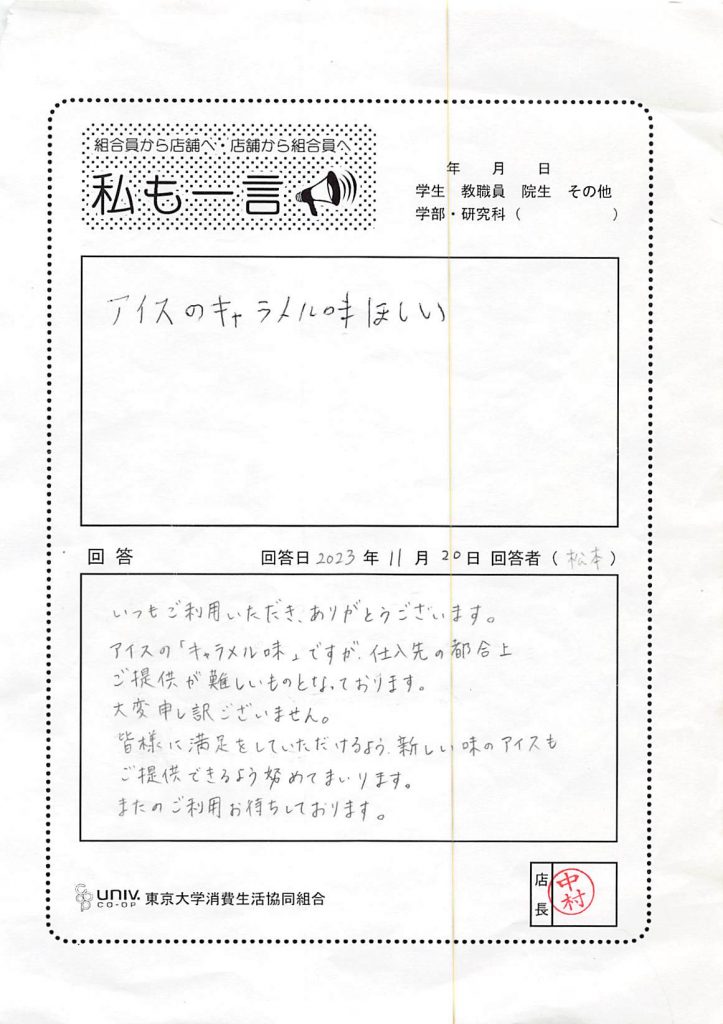 組合員から店舗へ・店舗から組合員へ
私も一言
年 月 日
学生 教職員 院生 その他
学部・研究科（ ）
アイスのキャラメル味ほしい
回答 回答日 2023 年 11 月 20 日 回答者（松本）
いつもご利用いただき、ありがとうございます。
アイスの「キャラメル味」ですが、仕入先の都合上
ご提供が難しいものとなっております。
大変申し訳ございません。
皆様に満足をしていただけるよう、新しい味のアイスも
ご提供できるよう努めてまいります。
またのご利用お待ちしております。
coop UNIV. CO-OP 東京大学消費生活協同組合
店長
中村